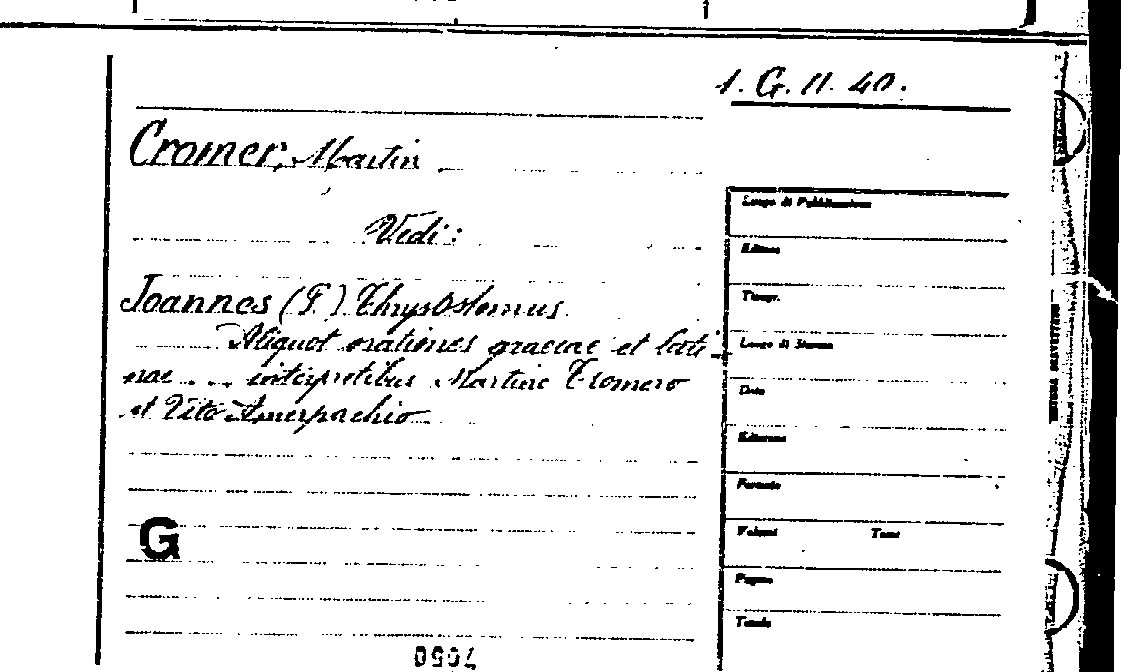 1. G. 11. 40.
Cromer, Martin
Vedi:
Joannes (S.) Chrysostomus
Aliquot orationes graecae et lati-
nae ... interpretibus Martino Cromero
et Vito Amerpachio
G
Luogo di Pubblicazione
Editore
Tipogr.
Luogo di Stampa
Data
Edizione
Formato
Volumi Tomi
Pagine
Tavole